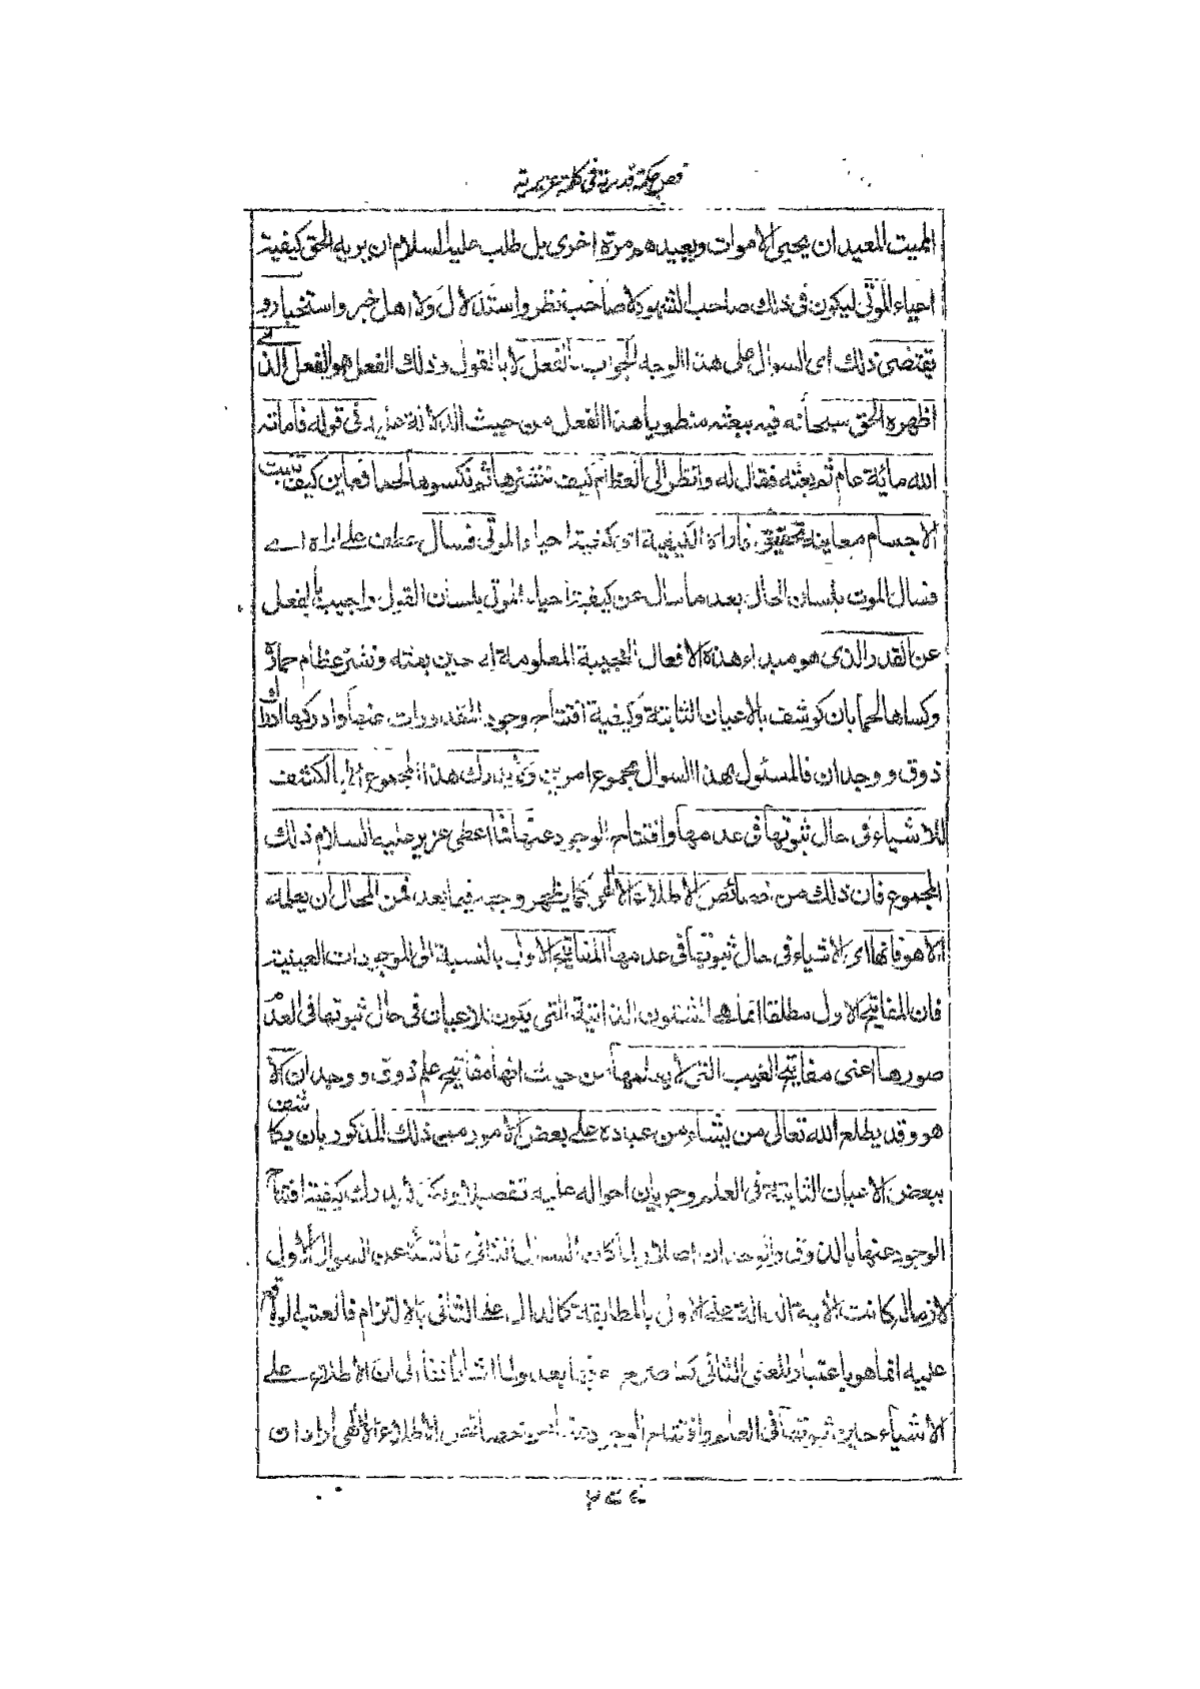 فص حكمة قدرية في كلمة عزيرية
المميت المعيد ان يحيى الاموات ويعيدهم مرة اخرى بل طلب عليه السلام ان يريه الحق كيفية
احياء الموتى ليكون في ذلك صاحب الشهود لا صاحب نظر واستدلال ولا اهل خبر واستخبار و
يقتضى ذلك اى السوال على هذا الوجه الجواب بالفعل لا بالقول وذلك الفعل هو الفعل الذى
اظهره الحق سبحانه فيه ببعثه منطويا هذا الفعل من حيث الدلالة عليه في قوله فاماته
الله مائة عام ثم بعثه فقال له وانظر الى العظام كيف ننشزها ثم نكسوها لحما فعاين كيف تنبت
الاجسام معاينة تحقيق فاراه الكيفية اى كيفية احياء الموتى فسال عطف على اراه اے
فسال الموت بلسان الحال بعد ما سال عن كيفية احياء الموتى بلسان القول واجيب بالفعل
عن القدر الذى هو مبداء هذه الافعال العجيبة المعلومة له حين بعثه ونشز عظام حماره
وكساها لحما بان كوشف بالاعيان الثابتة وكيفية افتتاح وجود المقدورات عنها وادركها ادراك
ذوق ووجدان فالمسئول بهذا السوال مجموع امرين ولا يدرك هذا المجموع الا بالكشف
للاشياء في حال ثبوتها في عدمها وافتتاح الوجود عنها فما اعطى عزير عليه السلام ذلك
المجموع فان ذلك من خصائص الاطلاع الالهى كما يظهر وجهه فيما بعد فمن المحال ان يعلمه
الا هو فانها اى الاشياء في حال ثبوتها في عدمها المفاتيح الاول بالنسبة الى الموجودات العينية
فان المفاتيح الاول مطلقا انما هى الشئون الذاتية التى يكون للاعيان في حال ثبوتها في العدم
صورها اعنى مفاتيح الغيب التى لا يعلمها من حيث انها مفاتيح علم ذوق ووجدان الا
هو وقد يطلع الله تعالى من يشاء من عباده على بعض الامور من ذلك المذكور بان يكاشف
ببعض الاعيان الثابتة في العلم وجريان احواله عليه تفصيلا ولكن لا يدرك كيفية افتتاح
الوجود عنها بالذوق والوجدان اصلا ولما كان السوال الثانى ناشئا عن السوال الاول
لازما له كانت الاية الدالة على الاول بالمطابقة كالدال على الثانى بالالتزام فالعتب الواقع
عليه انما هو باعتبار المعنى الثانى كما صرح به فيما بعد ولما اشار آنفا الى ان الاطلاع على
الاشياء حين ثبوتها في العلم وافتتاح الوجود عنها من خصائص الاطلاع الالهى اراد ان